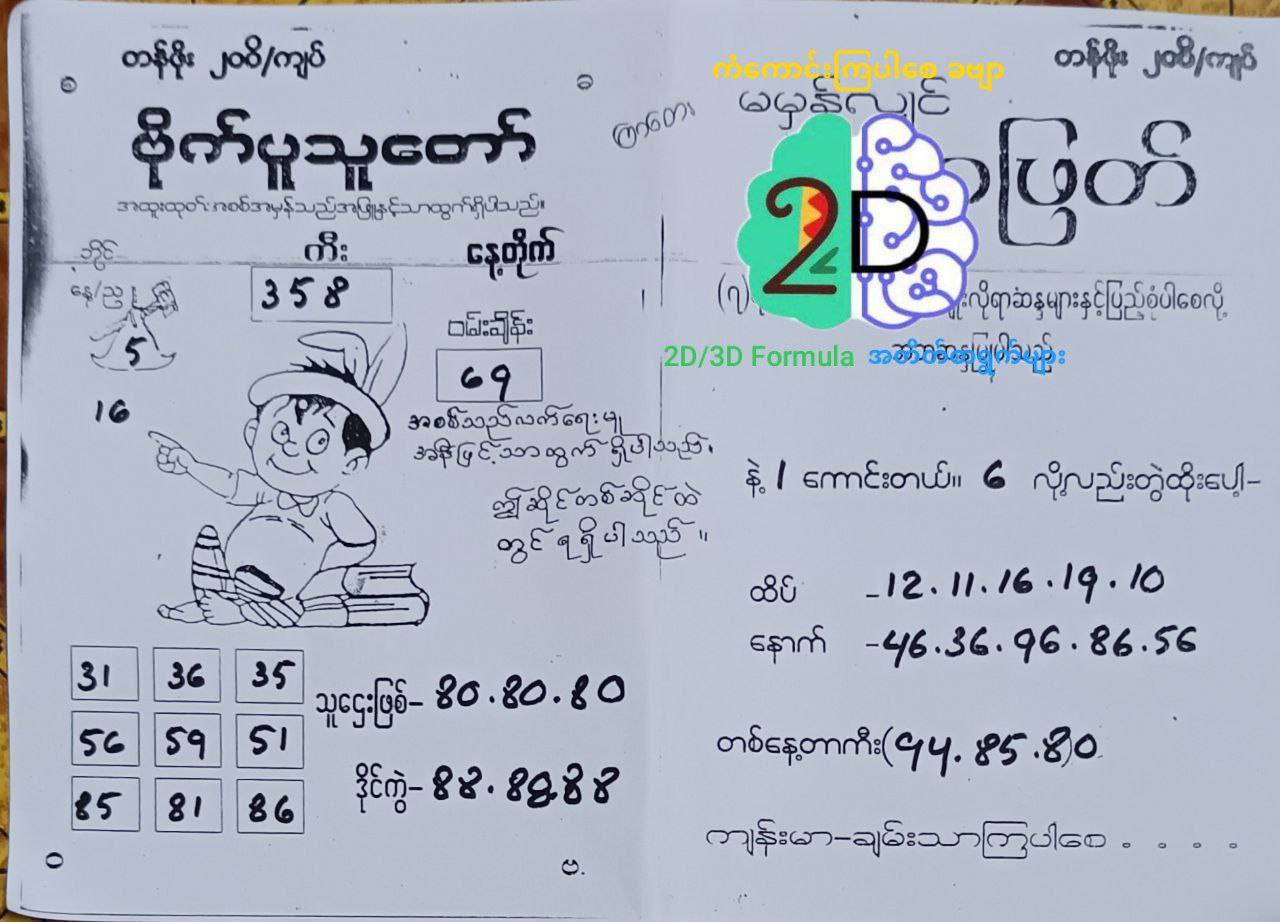 တန်ဖိုး ၂၀၀ိ/ကျပ်
ဗိုက်ပူသူတော်
အထူးထုတ်၊ အစစ်အမှန်သည်အဖြူနှင့်သာထွက်ရှိပါသည်။
ဘိုင်
ကီး
နေ့တိုက်
နေ့/ည
358
5
ဝမ်းချိန်း
69
16
အစစ်သည်လက်ရေးမူ
အနီဖြင့်သာထွက် ရှိပါသည်။
ဤဆိုင်တစ်ဆိုင်ထဲ
တွင် ရရှိပါသည် ။
31 36 35
56 59 51
85 81 86
သူဌေးဖြစ်– 80.80.80
ဒိုင်ကွဲ– 88.88.88
တန်ဖိုး ၂၀၀ိ/ကျပ်
ကံကောင်းကြပါစေ ခဗျာ
မမှန်လျှင်
ဖြတ်
2D
(၇)
လိုရာဆန္ဒများနှင့်ပြည့်စုံပါစေလို့
2D/3D Formula အတိတ်စာရွက်များ
နဲ့ 1 ကောင်းတယ်။ 6 လို့လည်းတွဲထိုးပေါ့–
ထိပ် –12.11.16.19.10
နောက် –46.36.96.86.56
တစ်နေ့တာကီး(94.85.8)0
ကျန်းမာ–ချမ်းသာကြပါစေ . . . .